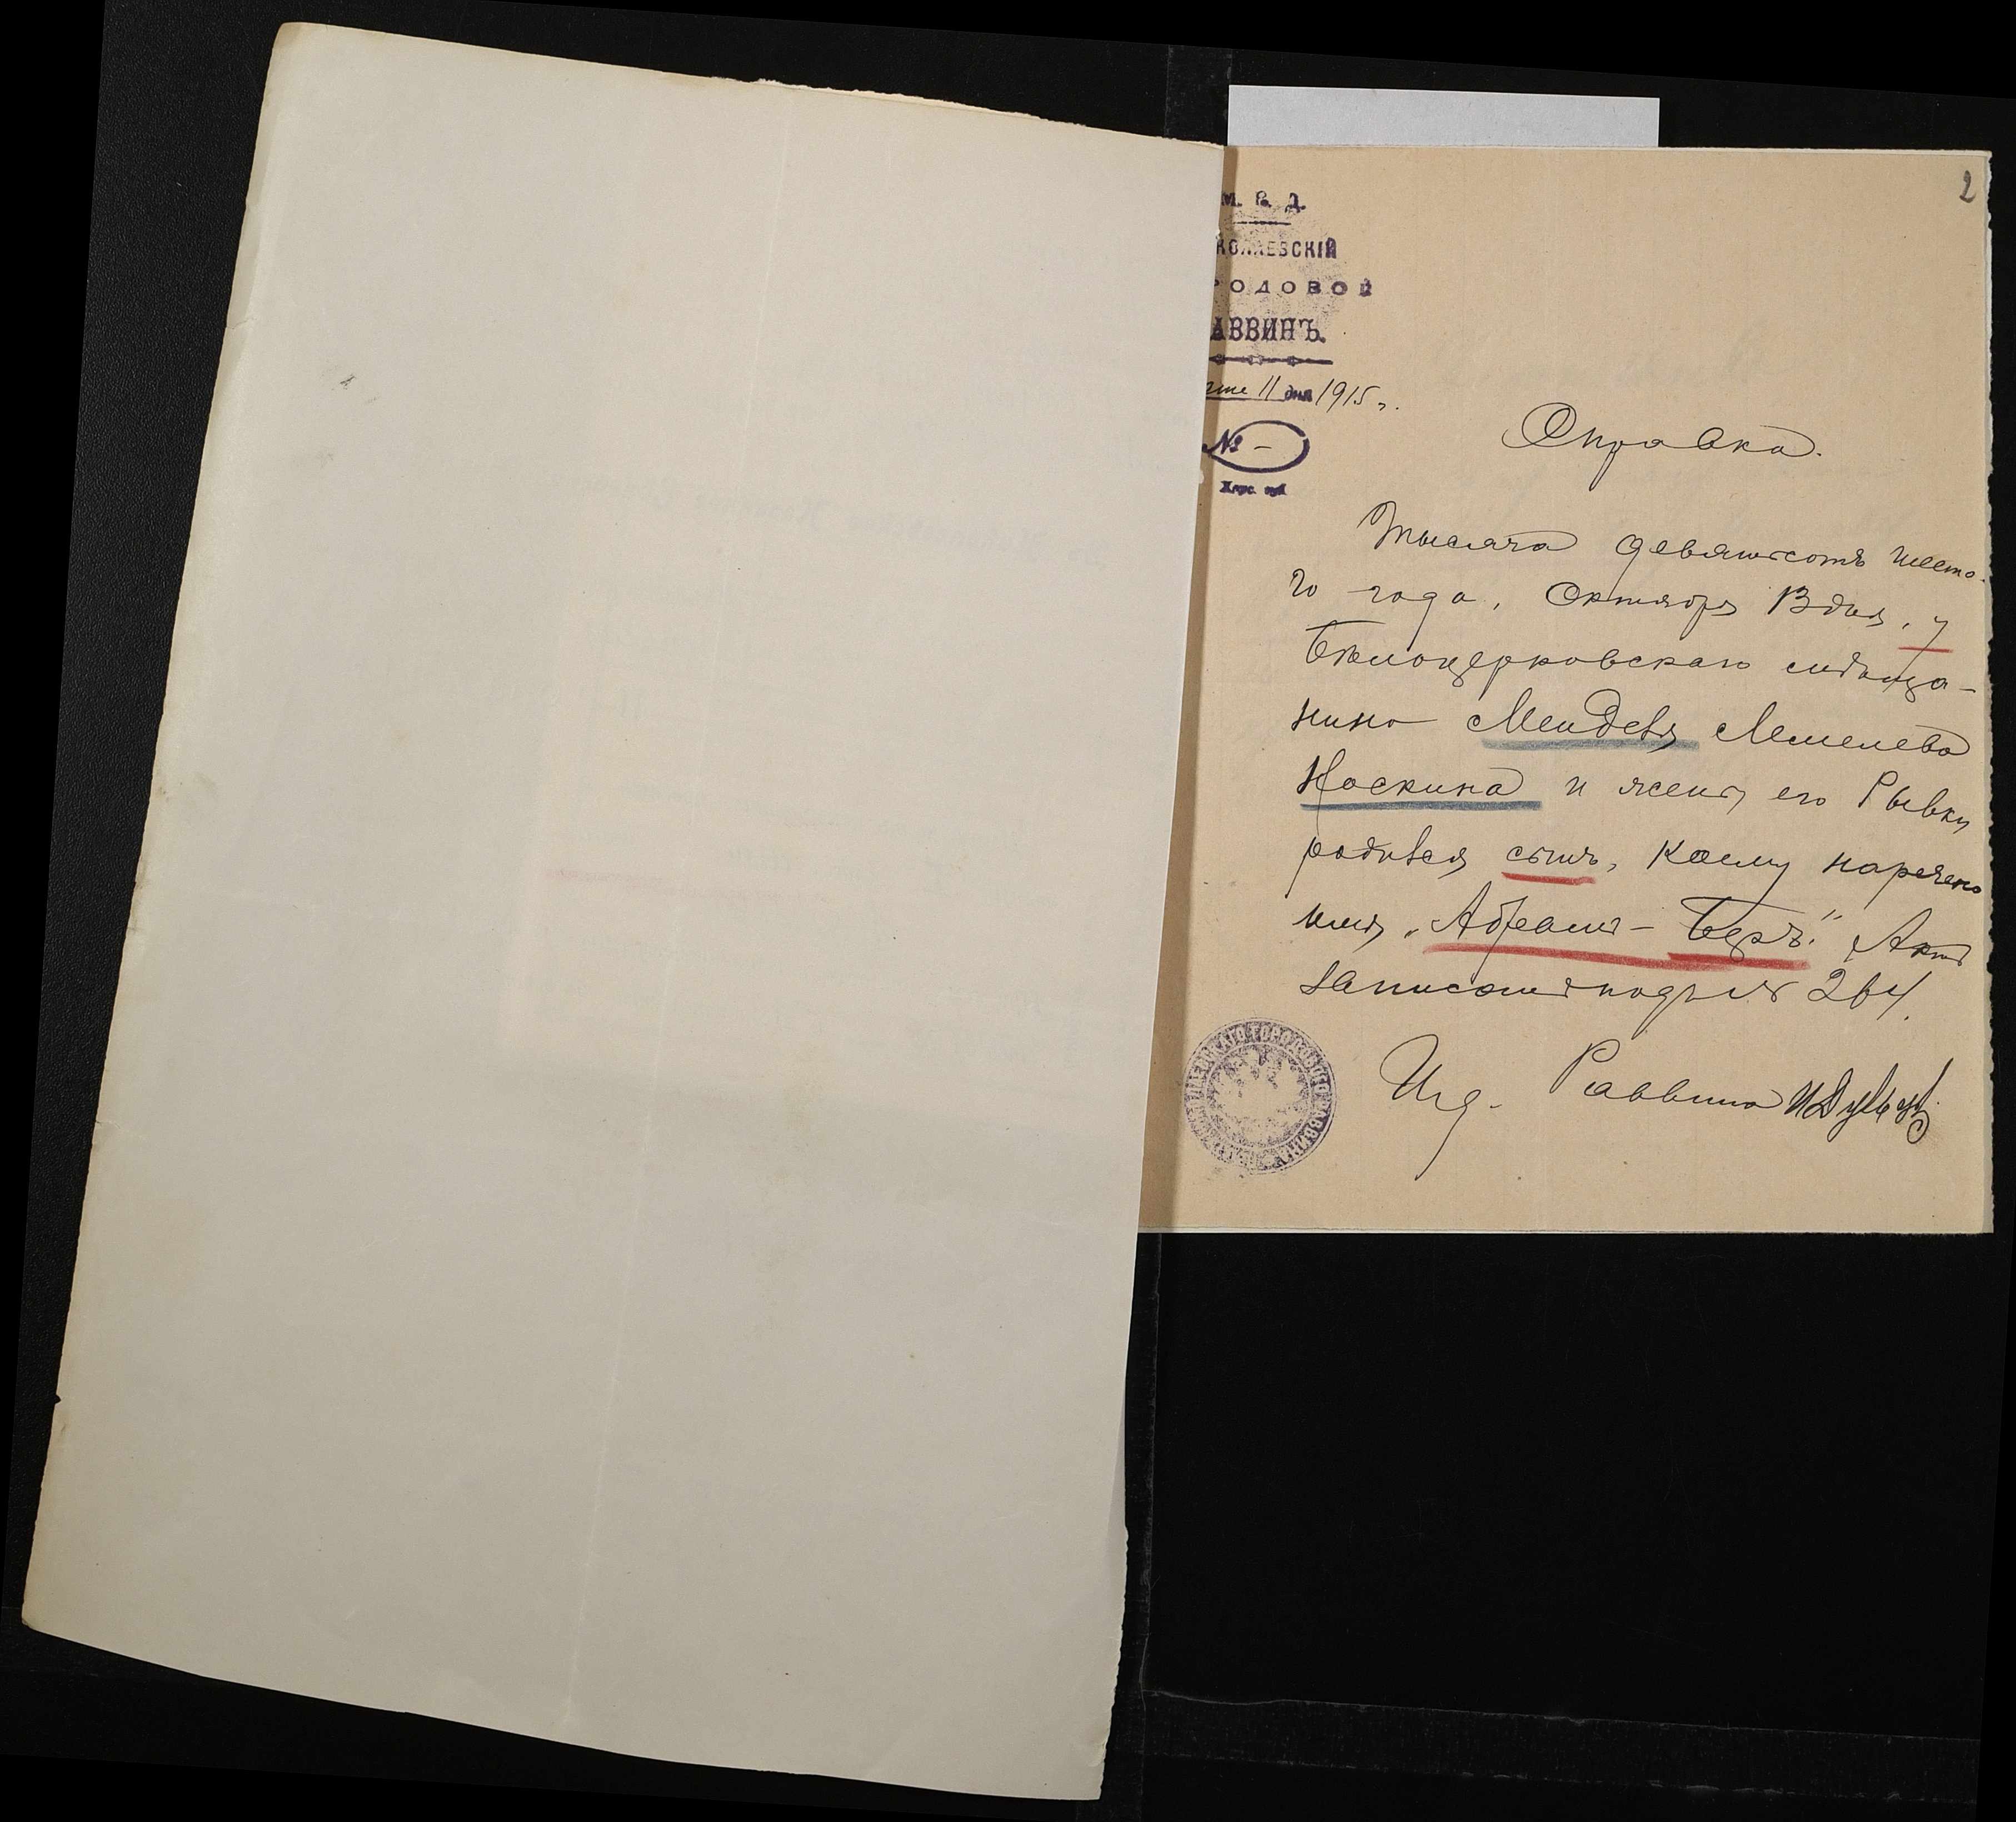 2
М. В. Д.
КОЛАЕВСКІЙ
РОДОВОЙ
АВВИНЪ.
11 дня 1915 г.
№ –
Херс. губ.
Справка.
Тысяча девятьсотъ шесто-
го года, Октября 13 дня, у
Бѣлоцерковскаго мѣща-
нина Менделя Лемелева
Носкина и жены его Рывки
родился сынъ, коему наречено
имя „Абрамъ – Беръ." Актъ
записанъ подъ №
И. д. Раввина